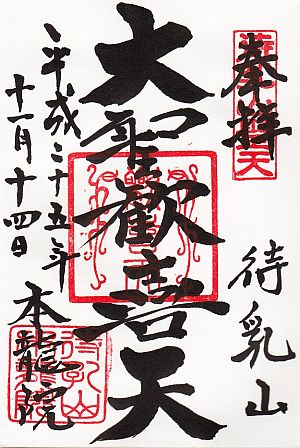 奉拝
待乳山
大聖歓喜天
平成二十五年
十一月十四日
本龍院